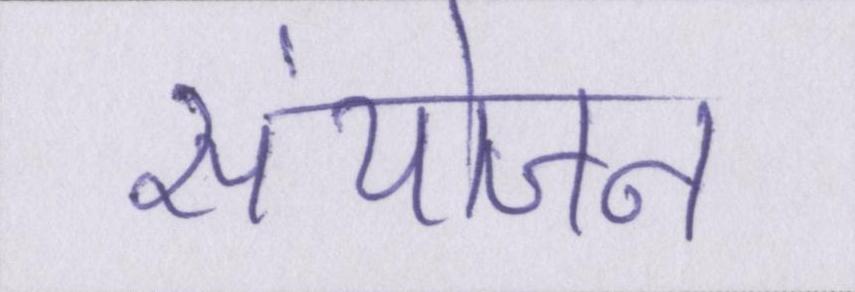 संयोजन